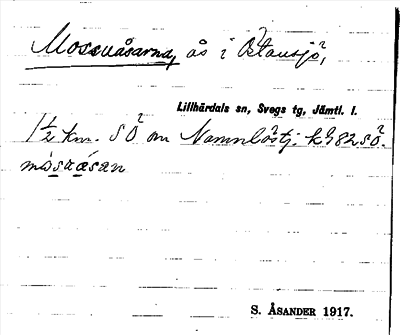 Mosenåsarna, ås i Östansjö,
Lillhärdals sn, Svegs tg, Jämtl. l.
1½ km. SÖ om Namnlöstj. k 982 SÖ.
S. ÅSANDER 1917.